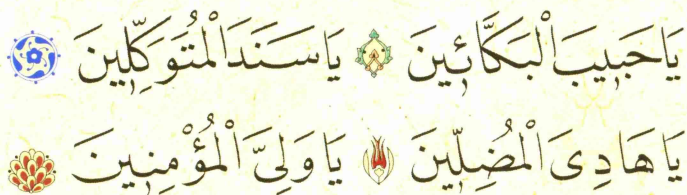 يَا حَبِيبَ الْبَكَّائِينَ يَا سَنَدَ الْمُتَوَكِّلِينَ
يَا هَادِىَ الْمُضِلِّينَ يَا وَلِىَّ الْمُؤْمِنِينَ